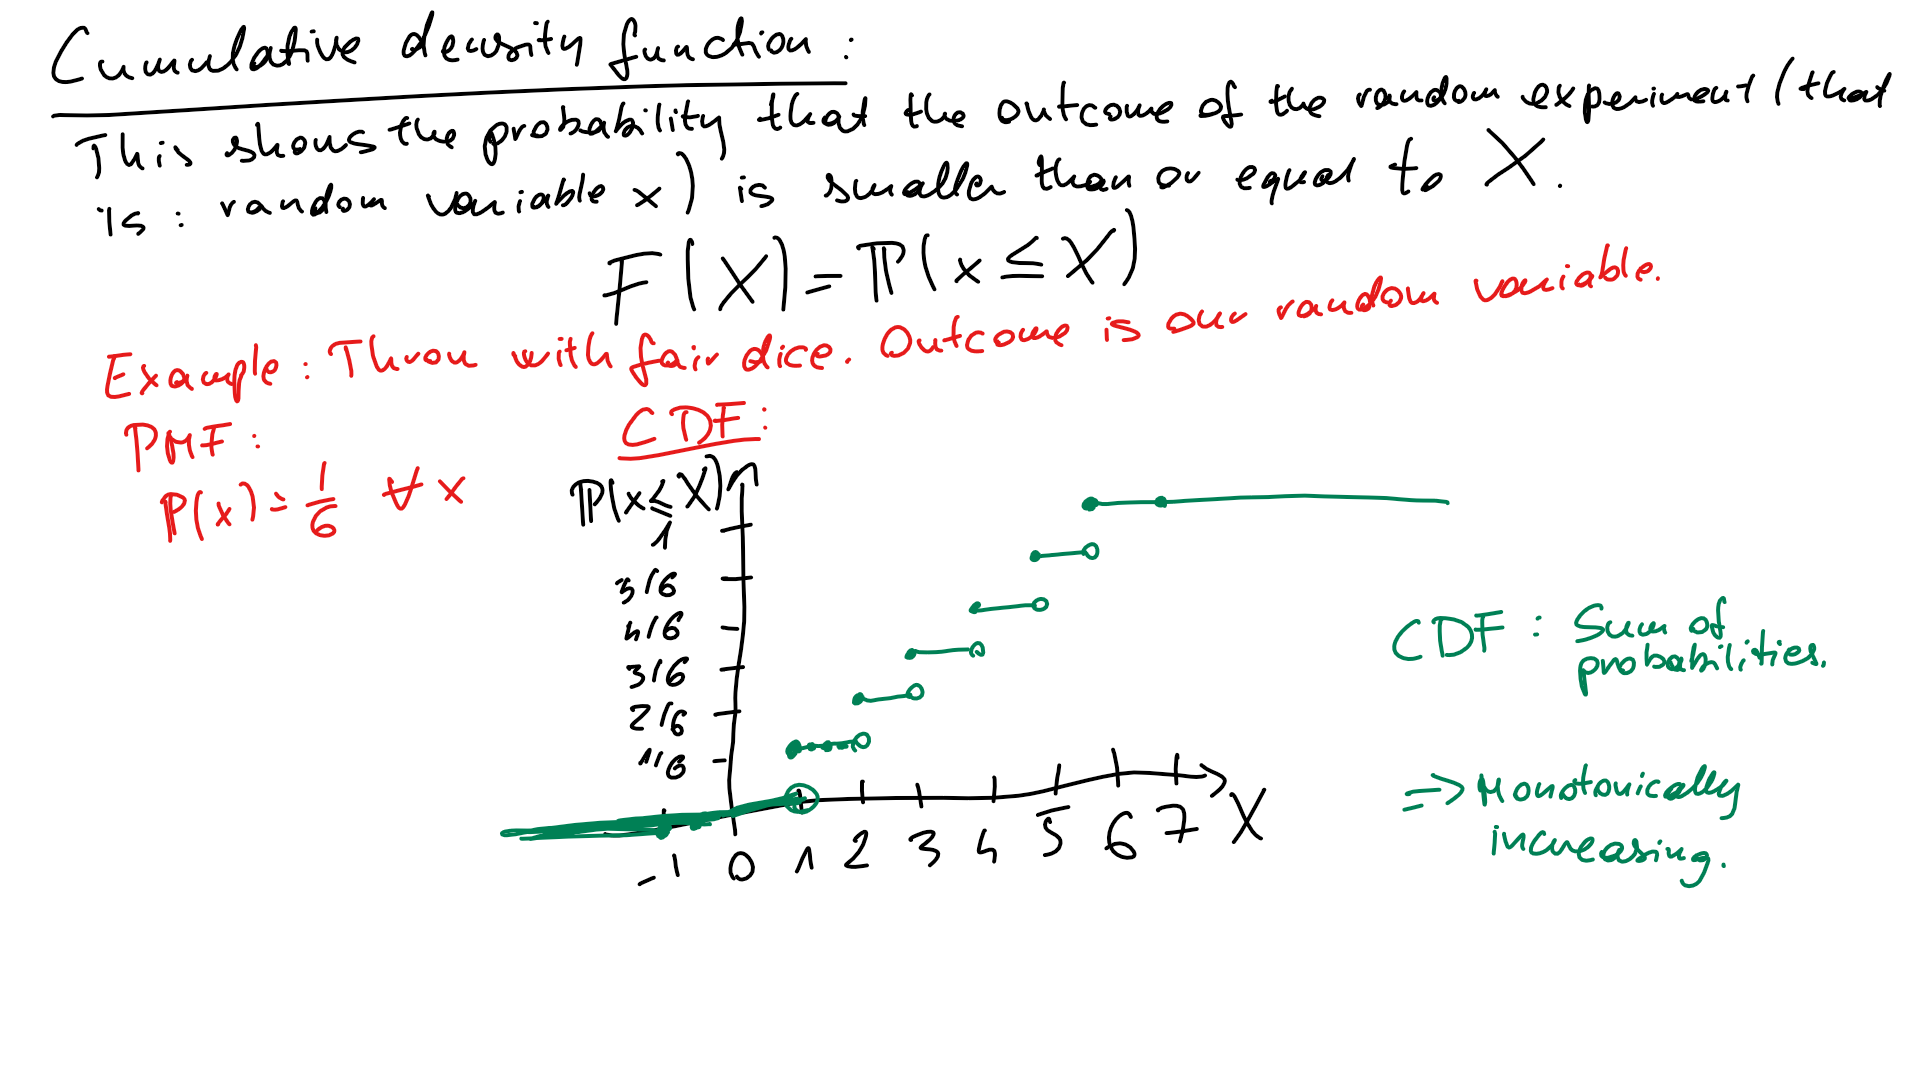 Cumulative density function :
This shows the probability that the outcome of the random experiment (that
is : random variable x) is smaller than or equal to X.
F(X) = ℙ(x ≤ X)
Example : Throw with fair dice. Outcome is our random variable.
PMF :
ℙ(x) = 1/6 ∀ x
CDF :
ℙ(x ≤ X)
1
5/6
4/6
3/6
2/6
1/6
-1 0 1 2 3 4 5 6 7 X
CDF : Sum of
probabilities.
=> Monotonically
increasing.